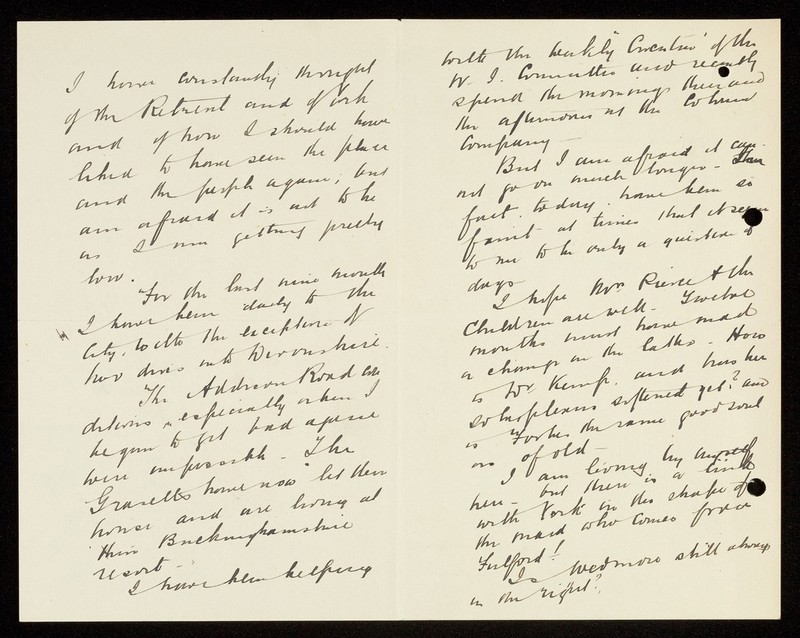 I have constantly thought
of the Retreat and of York
and of how I should have
liked to have seen the place
and the people again; but
am afraid it is not to be
as I am getting pretty
low.
For the last nine months
I have been daily to the
City. With the exception of
two days into Devonshire.
The Addison Road con
ditions especially when I
began to get bad again
were impossible - The
Grazells have now let their
house and are living at
their Buckinghamshire
resort -
I have been helping
with the weekly "Executive" of the
W. I. Committee and recently
spend the mornings there and
the afternoons at the Colonial
Company -
But I am afraid it can
not go on much longer -
fact. today. have been so
faint at times that it seems
to me to be only a question of
days
I hope Mrs. Pierce & the
Children are well. Twelve
months must have made
a change in the latter - How
is Dr. Kemp. and has her
solar plexus softened yet? and
is Forbes the same good soul
as of old -
I am living by myself
here - but there is a link
with York in the shape of
the maid who comes from
Fulford!
Is Wedmore still always
in the right?